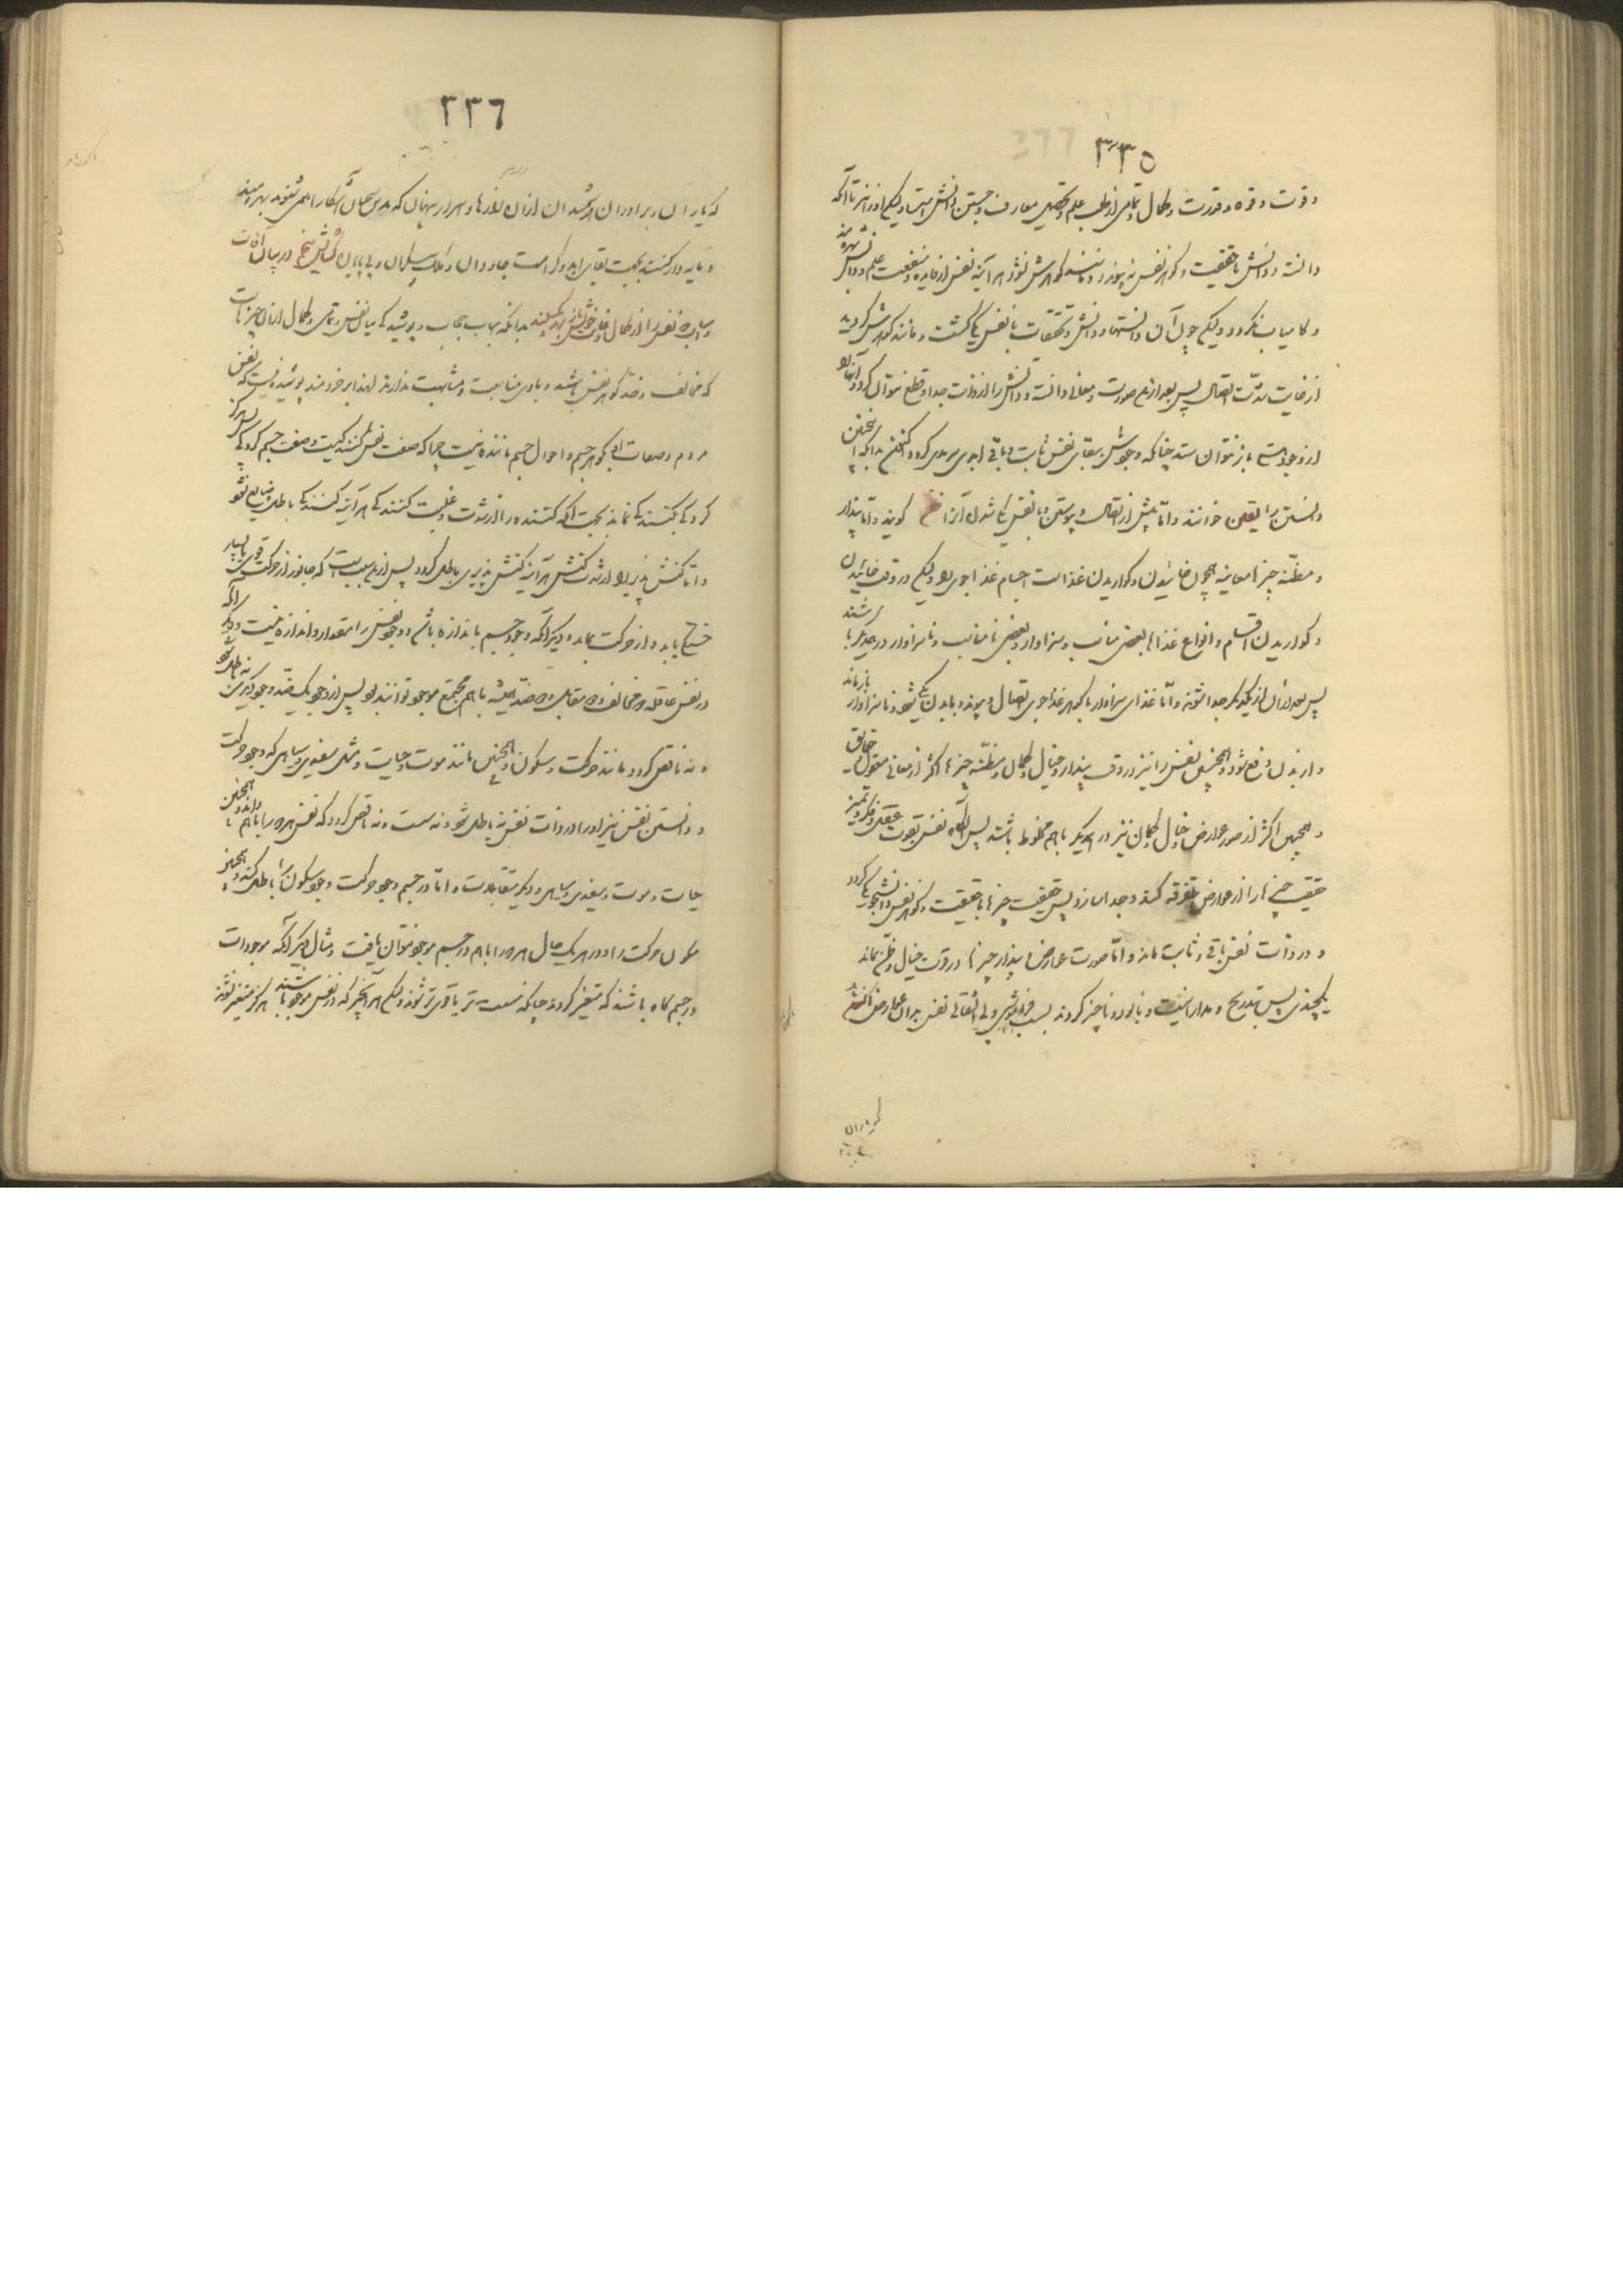 ٣٣٥
وقوت وقوه وقدرت وکمال وتمامی از طلب علم وتحصیل معارف وجستن دانش است ولیکن اورا نیز تا آنکه
دانسته ودانش با حقیقت وکوهر نفس نه پیوندد ومانند کوهرش نشود هر آینه نفس از فایده ومنفعت علم ودانش بهره مند
وکامیاب نکردد ولیکن چون آن دانستها ودانش وتحقیقات با نفس یکی کشت ومانند کوهرش کردید
از غایت شدّت اتصال پس بعد از این صورت ومعانی دانسته ودانش را از ذات جدا وقطع نتوان کرد وآنها را
از وجود هستی باز نتوان ستد چنانکه وجودش ببقای نفس ثابت وباقی ابدی سرمدی کردد
دانستن را یقین خوانند وامّا پیش از اتصال وپیوستن وبا نفس یکی شدن آنرا ظن کویند وامّا پندار
ومظنّه چیزها معاینه همچون خائیدن وکواریدن غذاست اجسام غذا جوی را ولیکن در وقت خائیدن
وکواریدن اقسام وانواع غذاها بعضی مناسب وسزاوار وبعضی نامناسب وناسزاوار در همدیگر باشند
پس بعد از آن از یکدیگر جدا شوند وامّا غذای سزاوار با کوهر غذا جوی اتصال وپیوندد وبا بدن یکی شود وناسزاوار باز ماند
واز بدن دفع شود وهمچنین نفس را نیز در وقت پندار وخیال وکمان ومظنّه چیزها اکثر از معانی معقول حقایق
وهمچنین اکثر از صور عوارض وخیال وکمان نیز در همدیگر باهم مخلوط باشند پس آنکاه نفس بقوت عقل وفکر وتمیز
حقیقت چیزها را از عوارض تفرقه کند وجدا سازد پس حقیقت چیزها با حقیقت وکوهر نفس دانشجو یکی کردد
ودر ذات نفس باقی وثابت ماند وامّا صورت عوارض وپندار چیزها در وقت خیال وظن بماند
یکچندی پس بتدریج ومدارا نیست ونابود وناچیز کردند بسبب فراموشی وبی التفاتی نفس بدان عوارض
که یاران
٣٣٦
که یاران وبرادران ارشدان از آن رازها واسرار پنهان که مدرس سخنان آشکارا همی شنوند بهره‌مند
ومایه ور کشتند بجهت بقای ابد وکرامت جاودان وملک بی پایان کشایش پنجم در بیان آفات
واسباب که نفس را از کمال خویش باز دارند بدانکه اسباب حجاب وپوشیدکی میان نفس وتمامی وکمال او آن چیزهاست
که مخالف وضدّ کوهر نفس باشند وبا وی مناسبت ومشابهت ندارند لهذا بر خردمند پوشیده نیست که نفس
مردم وصفات او بکوهر جسم واحوال جسم ماننده نیست چرا که صفت نفس کنندکیست وصفت جسم کردکی
کردکی بکنندکی نماند بجهت آنکه کننده را از شدت وغلبت کنندکی هر آینه کنندکی باطل وضایع نشود
وامّا کنش پذیر را از شدت کنش هر آینه کنش پذیری باطل کردد پس از این سبب است که جانور از حرکت قوی بسیار
خسته یابد واز حرکت بماند ودیگر آنکه وجود جسم با اندازه باشد ووجود نفس را مقدار واندازه نیست ودیگر آنکه
در نفس عاقله دو مخالف ودو مقابل ودو ضدّ همیشه باهم مجتمع موجود توانند بود پس از وجود یک ضدّ وجود دیگری نه باطل شود
ونه ناقص کردد مانند حرکت وسکون وهمچنین مانند موت وحیات ومثل سفیدی وسیاهی که وجود حرکت
ودانستن نفس نیز او را در ذات نفس نه باطل شود نه سست ونه ناقص کردد که نفس هر دو را باهم بداند وهمچنین
حیات وموت وسفیدی وسیاهی ودیگر متقابلات وامّا در جسم وجود حرکت وجود سکون را باطل کند وهمچنین
سکون حرکت را ودر هر یک حال هر دو را باهم در جسم موجود نتوان یافت ومثال دیگر آنکه موجودات
در جسم کاه باشند که متغیر کردند چنانکه سست تر یا قوی تر شوند ولیکن هر آنچیز که در نفس موجود باشند هرکز متغیر نشوند